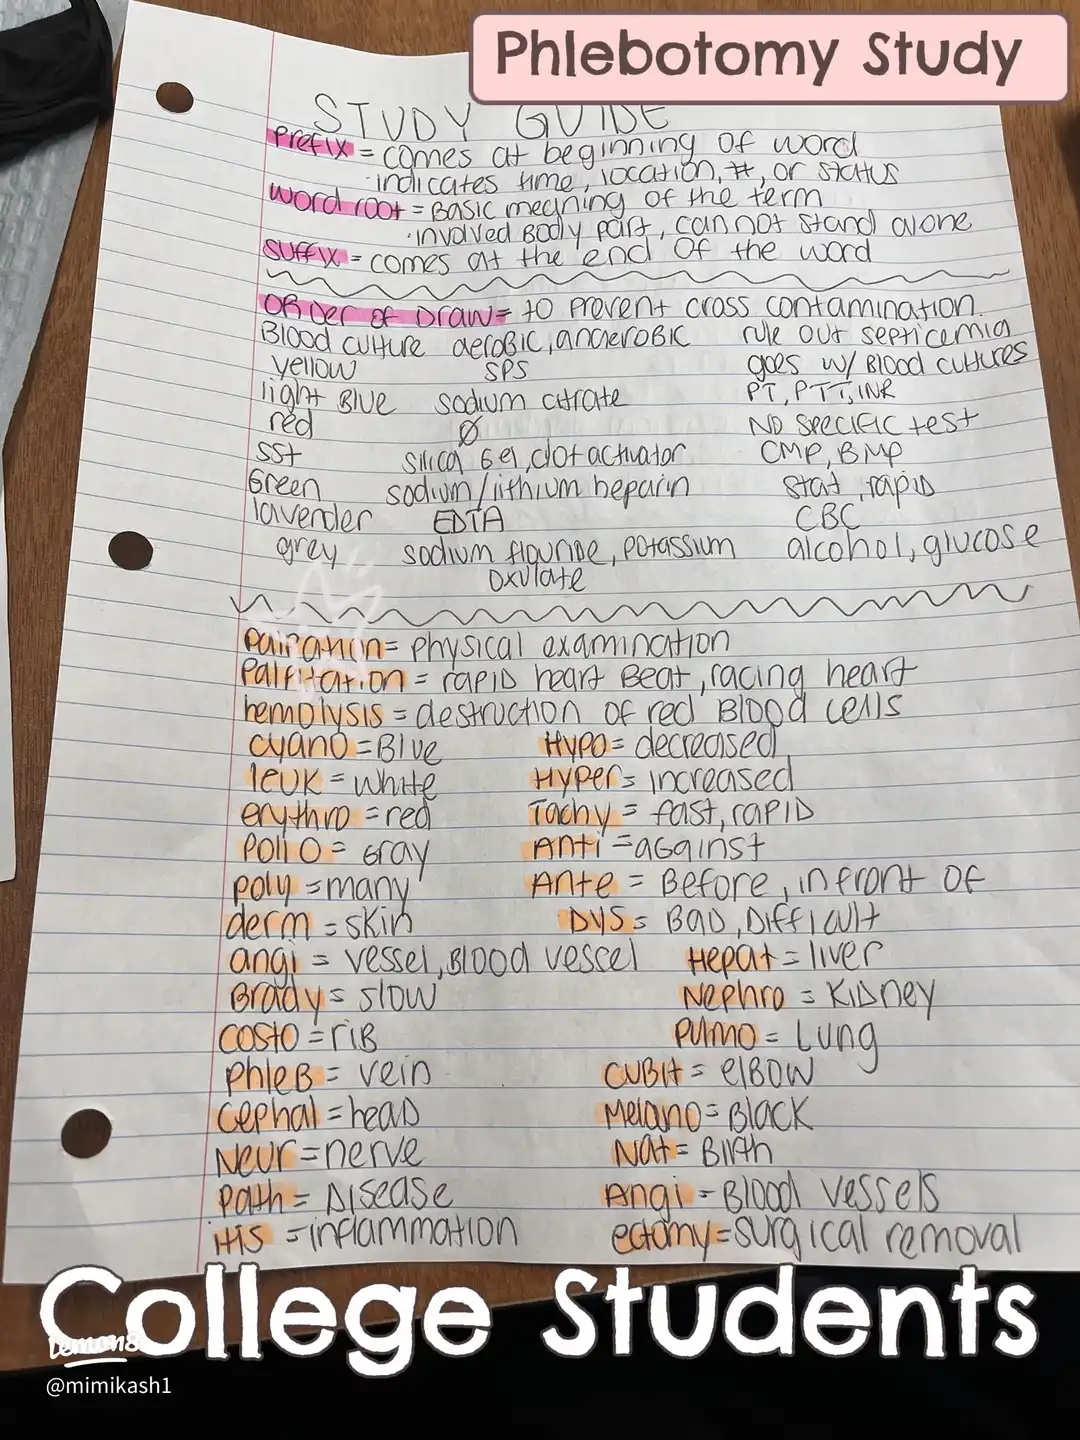 Phlebotomy Study
STUDY GUIDE
Prefix = comes at beginning of word
· indicates time, location, #, or status
word root = Basic meaning of the term
· involved Body part, cannot stand alone
suffix = comes at the end of the word
Order of Draw = to prevent cross contamination.
Blood culture aerobic, anaerobic rule out septicemia
yellow SPS goes w/ Blood cultures
light Blue sodium citrate PT, PTT, INR
red Ø No specific test
SST silica Gel, clot activator CMP, BMP
Green sodium/lithium heparin stat, rapid
lavender EDTA CBC
grey sodium flouride, potassium alcohol, glucose
oxulate
= physical examination
Palpitation = rapid heart Beat, racing heart
hemolysis = destruction of red Blood cells
cyano = Blue Hypo = decreased
leuk = white Hyper = increased
erythro = red Tachy = fast, rapid
Polio = Gray Anti = against
poly = many Ante = Before, in front of
derm = skin Dys = Bad, Difficult
angi = vessel, Blood vessel Hepat = liver
Brady = slow Nephro = Kidney
costo = rib Pulmo = Lung
Phleb = vein Cubit = elbow
Cephal = head Melano = Black
Neur = nerve Nat = Birth
Path = Disease Angi = Blood vessels
itis = inflammation ectomy = surgical removal
College Students
lemon8
@mimikash1